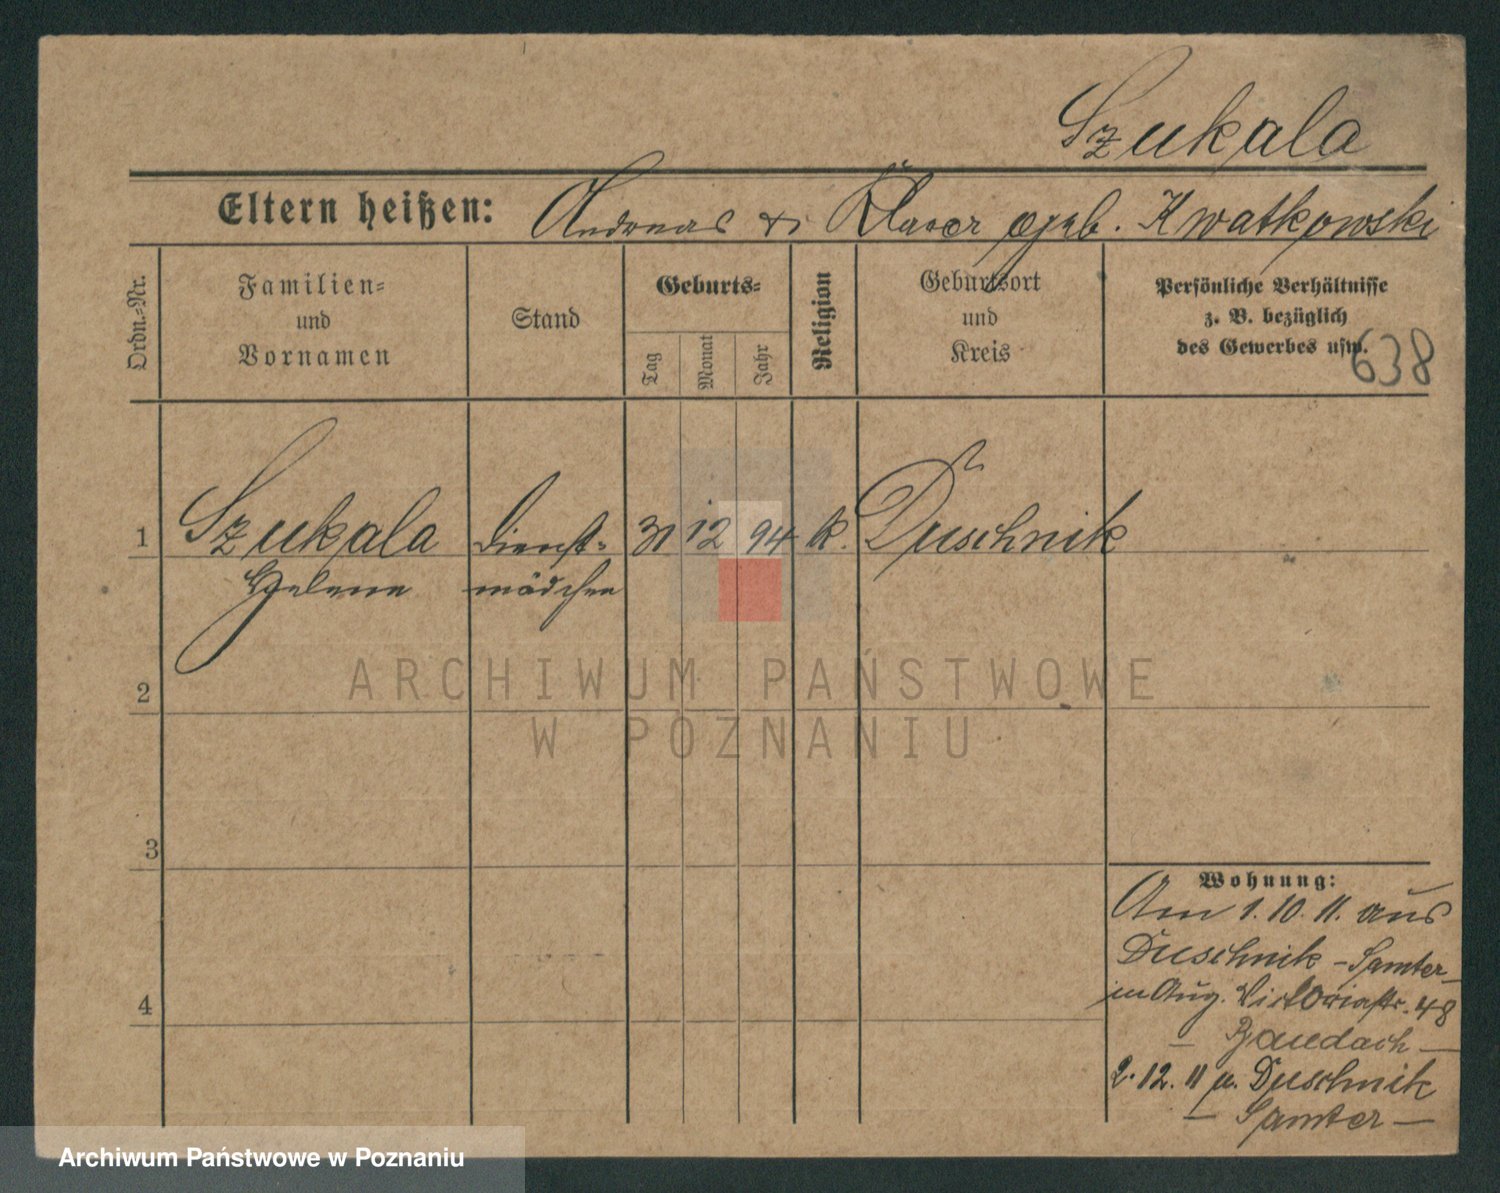 Szukala
Eltern heißen: Andreas & geb. Kwatkowski
Ordn.-Nr.
Familien-
und
Vornamen
Stand
Geburts-
Tag
Monat
Jahr
Religion
Geburtsort
und
Kreis
Persönliche Verhältnisse
z. B. bezüglich
des Gewerbes usw.
638
1 Szukala Dienst- 31 12 94 k. Duschnik
Helene mädchen
2
3
4
Wohnung:
Am 1.10.11. aus
Duschnik - Samter
in Aug. Victoriastr. 48
2.12.11 n. Duschnik
- Samter -
ARCHIWUM PAŃSTWOWE
W POZNANIU
Archiwum Państwowe w Poznaniu